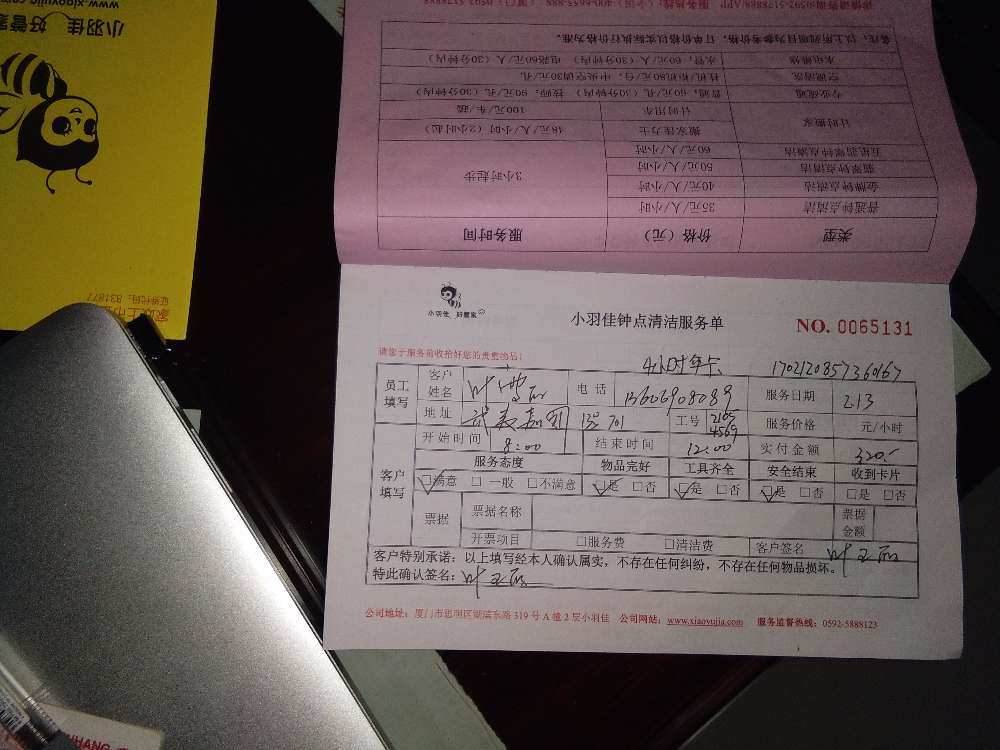 小羽佳 好管家
www.xiaoyujia.com
证券代码：831877
详情请咨询：0592-5178888/APP
服务热线：
备注：以上所列项目为参考价格，订单价格以实际执行价格为准。
水电维修 水管：60元/人（30分钟内） 电路60元/人（30分钟内）
空调清洗 挂机/柜机80元/台，中央空调30元/孔
专业疏通 普通：60元/孔（30分钟内） 技师：90元/孔（30分钟内）
计时搬家 计时用车 100元/车/趟
搬家佳力士 48元/人/小时（2小时起）
五钻翡翠钟点清洁 60元/人/小时
翡翠钟点清洁 50元/人/小时
金牌钟点清洁 40元/人/小时
普通钟点清洁 35元/人/小时
3小时起步
类型 价格（元） 服务时间
小羽佳 好管家
小羽佳钟点清洁服务单
NO. 0065131
请您于服务前收拾好您的贵重物品：
4小时年卡 170212085736067
员工填写 客户姓名 电话 13606908089 服务日期 213
地址 1号701 工号 2165 4569 服务价格 元/小时
客户填写 开始时间 8:00 结束时间 12:00 实付金额 320.-
服务态度 物品完好 工具齐全 安全结束 收到卡片
□满意 □一般 □不满意 □是 □否 □是 □否 □是 □否 □是 □否
票据 票据名称 票据金额
开票项目 □服务费 □清洁费 客户签名
客户特别承诺：以上填写经本人确认属实，不存在任何纠纷，不存在任何物品损坏。
特此确认签名：
公司地址：厦门市思明区湖滨东路319号A幢2层小羽佳 公司网站：www.xiaoyujia.com 服务监督热线：0592-5888123